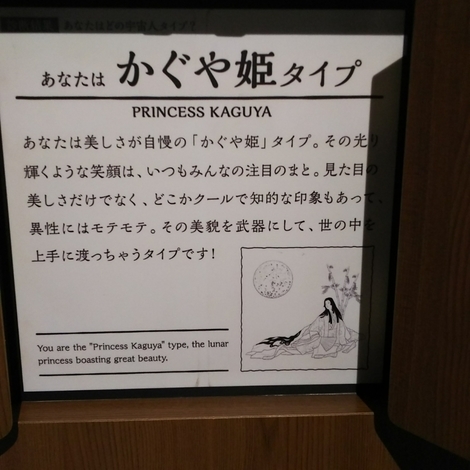 あなたはどの宇宙人タイプ？
あなたは かぐや姫タイプ
PRINCESS KAGUYA
あなたは美しさが自慢の「かぐや姫」タイプ。その光り
輝くような笑顔は、いつもみんなの注目のまと。見た目の
美しさだけでなく、どこかクールで知的な印象もあって、
異性にはモテモテ。その美貌を武器にして、世の中を
上手に渡っちゃうタイプです！
You are the "Princess Kaguya" type, the lunar
princess boasting great beauty.